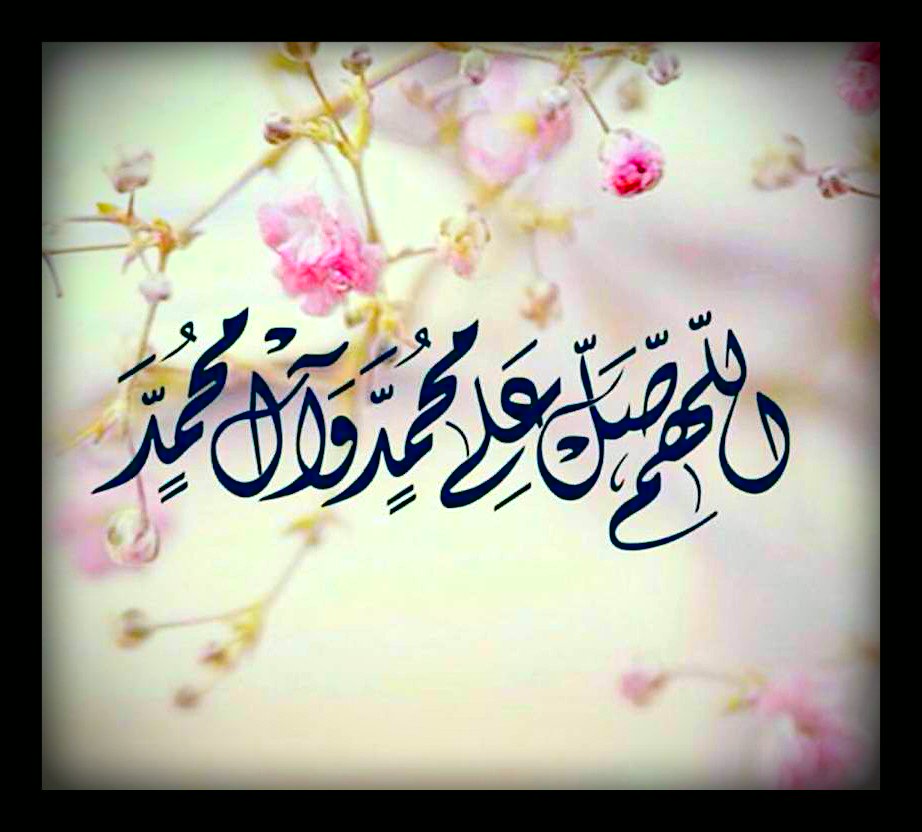 اللّهم صَلّ عَلى محُمّدٍ وَآل محُمّدٍ